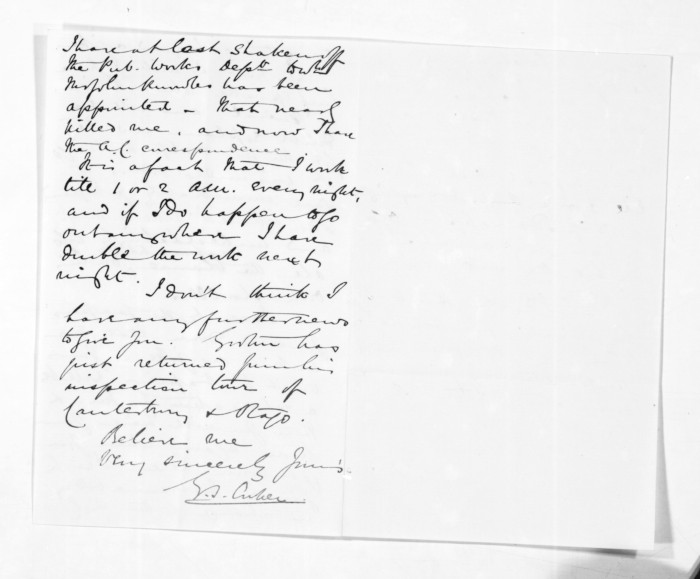 I have at last shaken off
the Pub. Works Deptt to wh
Mr John Knowles has been
appointed - that nearly
killed me, and now I have
the A.C. correspondence.
It is a fact that I work
till 1 or 2 a.m. every night,
and if I do happen to go
out anywhere I have
double the work next
night.
I don't think I
have any further news
to give you. has
just returned from his
inspection tour of
Canterbury & Otago.
Believe me
Very sincerely yours.
G.S. Cooper